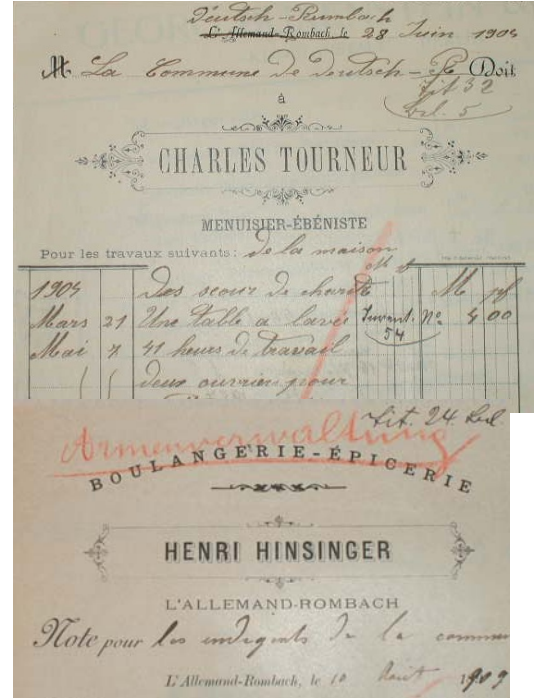 Deutsch-Rumbach
L'Allemand-Rombach, le 28 Juin 1904
M. La Commune de Deutsch-R Doit
Tit 32
à
CHARLES TOURNEUR
MENUISIER-ÉBÉNISTE
Pour les travaux suivants: de la maison
1904 Des seour de charité M pf
Mars 21 Une table a lavée Invent. No 4 00
54
Mai 7 41 heurs de travail
deux ouvriers pour
Tit. 24.
Armenverwaltung
BOULANGERIE-ÉPICERIE
HENRI HINSINGER
L'ALLEMAND-ROMBACH
Note pour les indigents de la commun
L'Allemand-Rombach, le 10 Août 1909